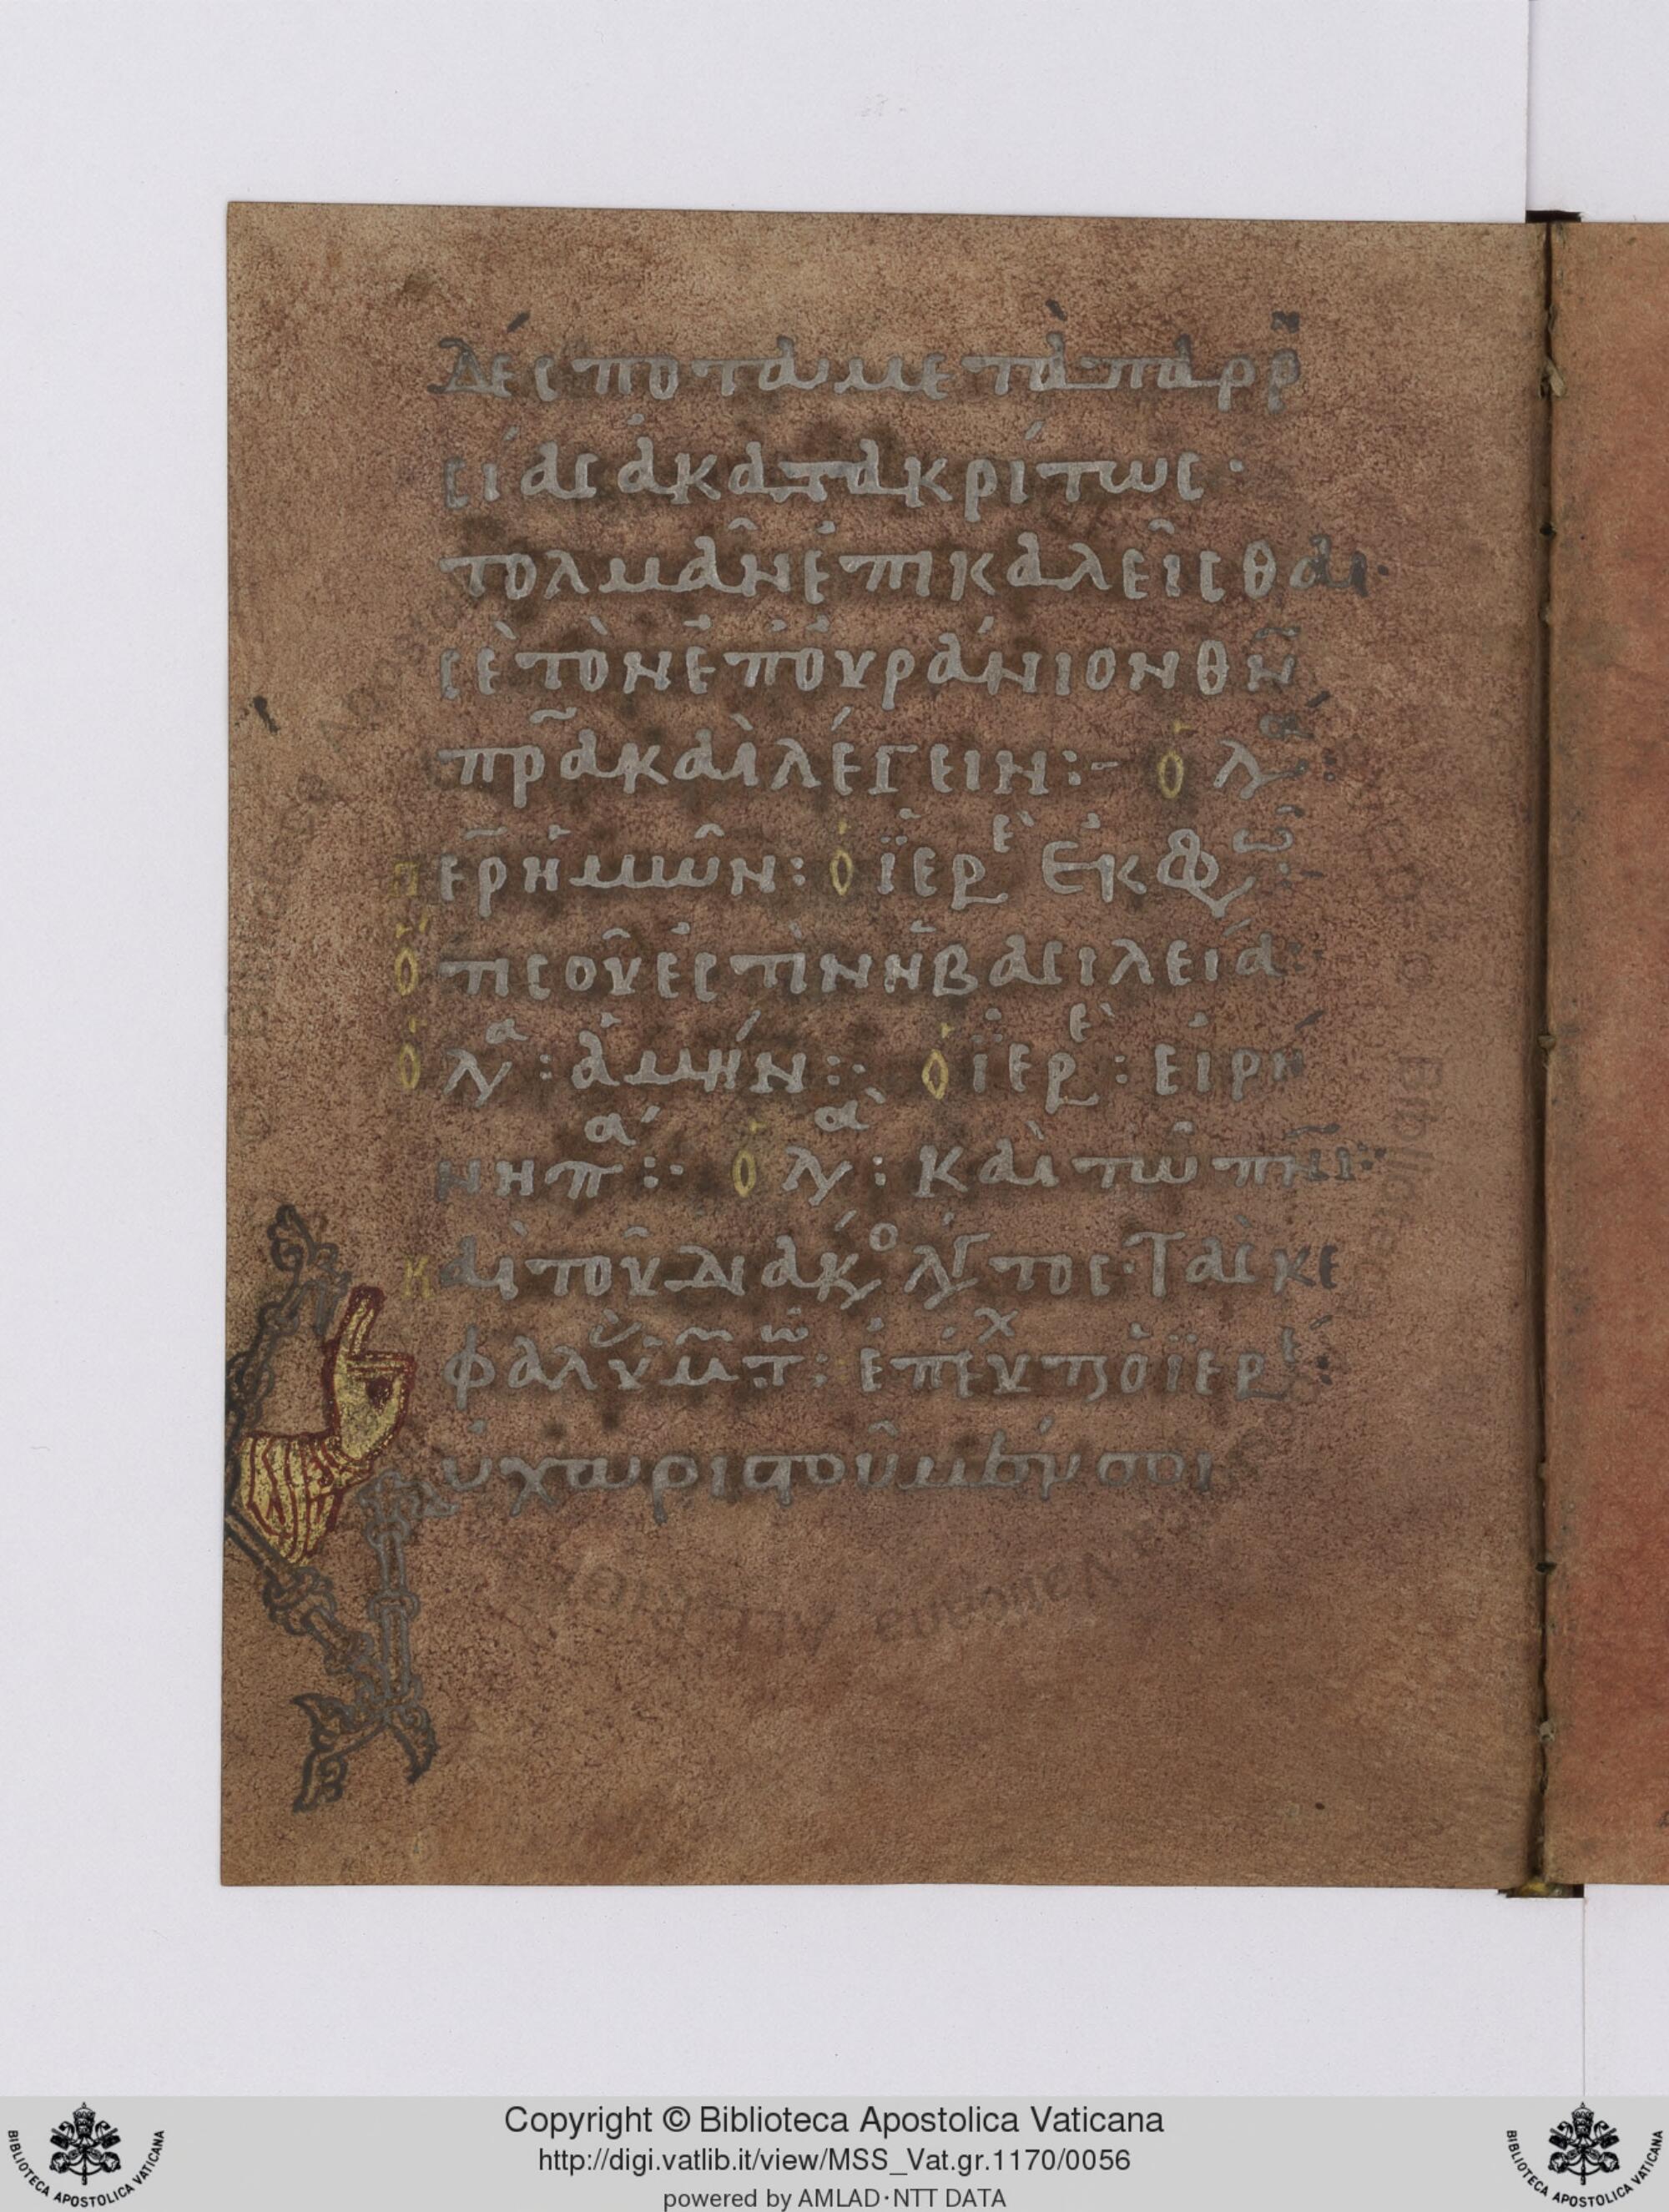 Δέσποτα μετὰ παρρη
σίας ἀκατακρίτως·
τολμᾶν ἐπικαλεῖσθαι·
σὲ τὸν ἐπουράνιον θν̄
πρ̄α καὶ λέγειν:- ὁ λα
ερ ἡμῶν: ὁ ἱερε ἐκφω
τι σοῦ ἐστὶν ἡ βασιλεία
ὁ λα: ἀμήν: ὁ ἱερε: εἰρή
νη πα: ὁ λα: Καὶ τῶ πνῑ
καὶ τοῦ διακο λγτος· Τὰς κε
φαλ ὑμ τ: ἐπεύχ ὁ ἱερε
υχαριστοῦμέν σοι
Copyright © Biblioteca Apostolica Vaticana
http://digi.vatlib.it/view/MSS_Vat.gr.1170/0056
powered by AMLAD·NTT DATA
BIBLIOTECA APOSTOLICA VATICANA
BIBLIOTECA APOSTOLICA VATICANA